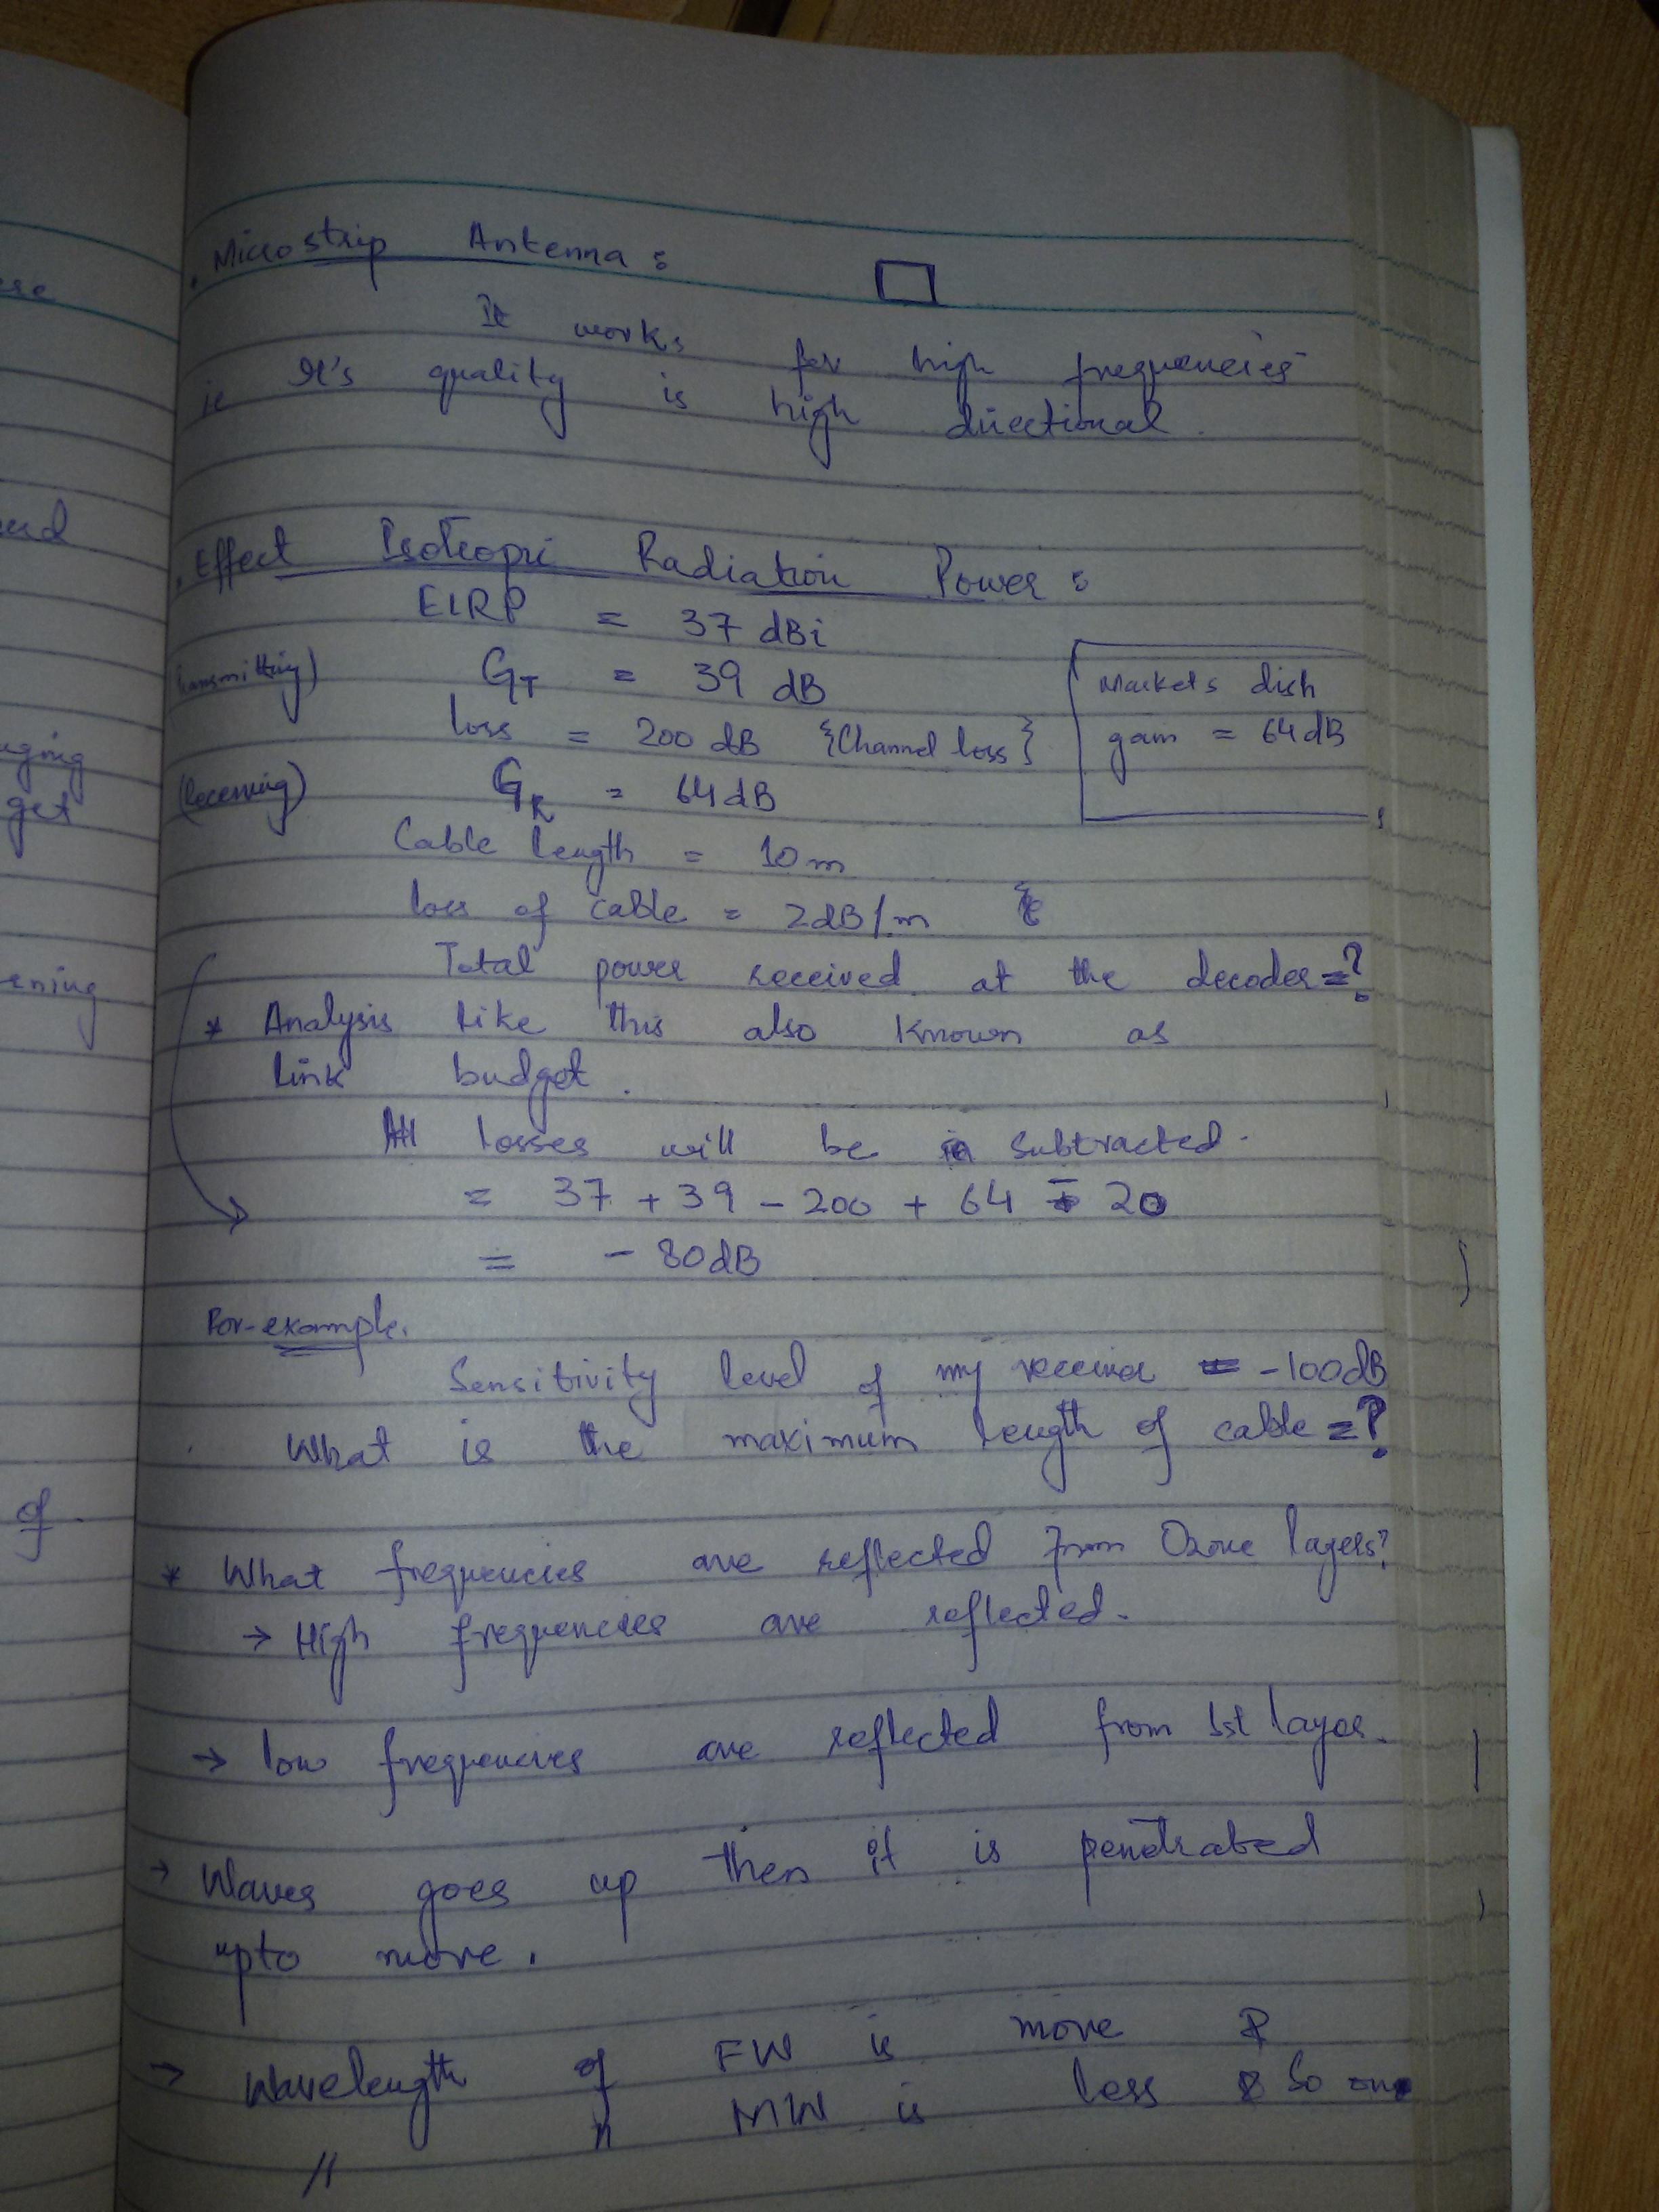 ese
ed
nging
get
ening
of
. Microstrip Antenna :
It works for high frequencies
ie It's quality is high directional.
. Effect Isotropic Radiation Power :
EIRP = 37 dBi
(Transmitting) GT = 39 dB
loss = 200 dB {Channel loss}
Markets dish
gain = 64 dB
(Receiving) GR = 64 dB
Cable length = 10 m
loss of cable = 2dB/m
Total power received at the decoder=?
* Analysis like this also known as
link budget.
All losses will be subtracted.
= 37 + 39 - 200 + 64 - 20
= - 80 dB
For-example.
Sensitivity level of my receiver = -100dB
What is the maximum length of cable =?
* What frequencies are reflected from Ozone layers?
→ High frequencies are reflected.
→ low frequencies are reflected from 1st layer.
→ Waves goes up then it is penetrated
upto more.
→ Wavelength of FW is more &
// " MW is less & So on